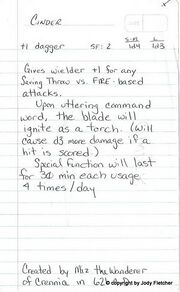 CINDER
S-M L
+1 dagger SF: 2 1d4 1d3
Gives wielder +1 for any
Saving Throw vs. FIRE-based
attacks.
Upon uttering command
word, the blade will
ignite as a torch. (Will
cause d3 more damage if a
hit is scored.)
Special function will last
for min each usage
4 times/day
Created by the Wanderer
of Crennia in
© copyright by Jody Fletcher